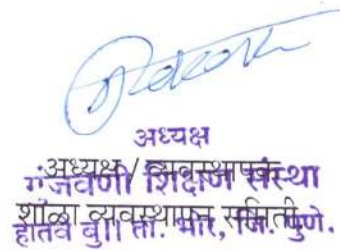 अध्यक्ष
अध्यक्ष / व्यवस्थापक
गुंजवणी शिक्षण संस्था
शाळा व्यवस्थापन समिती
हातवे बु|| ता. भोर, जि. पुणे.